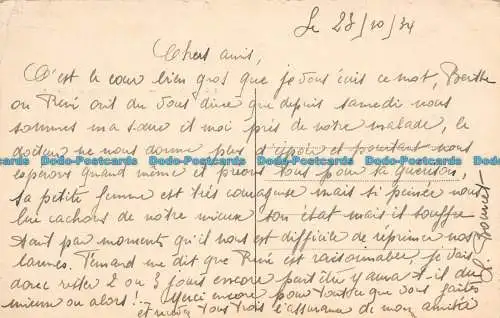 le 23/10/34
Chers amis,
C'est le cœur bien gros que je vous écris ce mot, Berthe
ou René ont du vous dire que depuis samedi nous
sommes ma sœur et moi près de notre malade, le
docteur ne nous donne plus d'espoir et pourtant nous
espérons quand même et prions tous pour sa guérison,
sa petite femme est très courageuse mais si peinée nous
lui cachons de notre mieux son état mais il souffre
tant par moments qu'il nous est difficile de réprimer nos
larmes. me dit que René est raisonnable, je vais
donc rester 2 ou 3 jours encore peut être y aura-t-il du
mieux ou alors! .. Merci encore pour tout ce que vous faites
et tous trois l'assurance de mon amitié
Dodo-Postcards Dodo-Postcards Dodo-Postcards Dodo-Postcards
Dodo-Postcards Dodo-Postcards Dodo-Postcards Dodo-Postcards